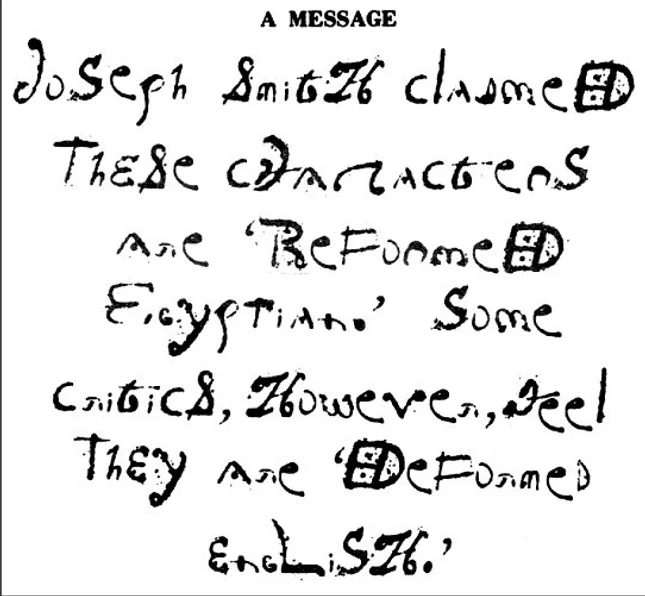 A MESSAGE
Joseph Smith claimed
These characters
are 'Reformed
Egyptian.' Some
critics, However, feel
They are 'Deformed
English.'